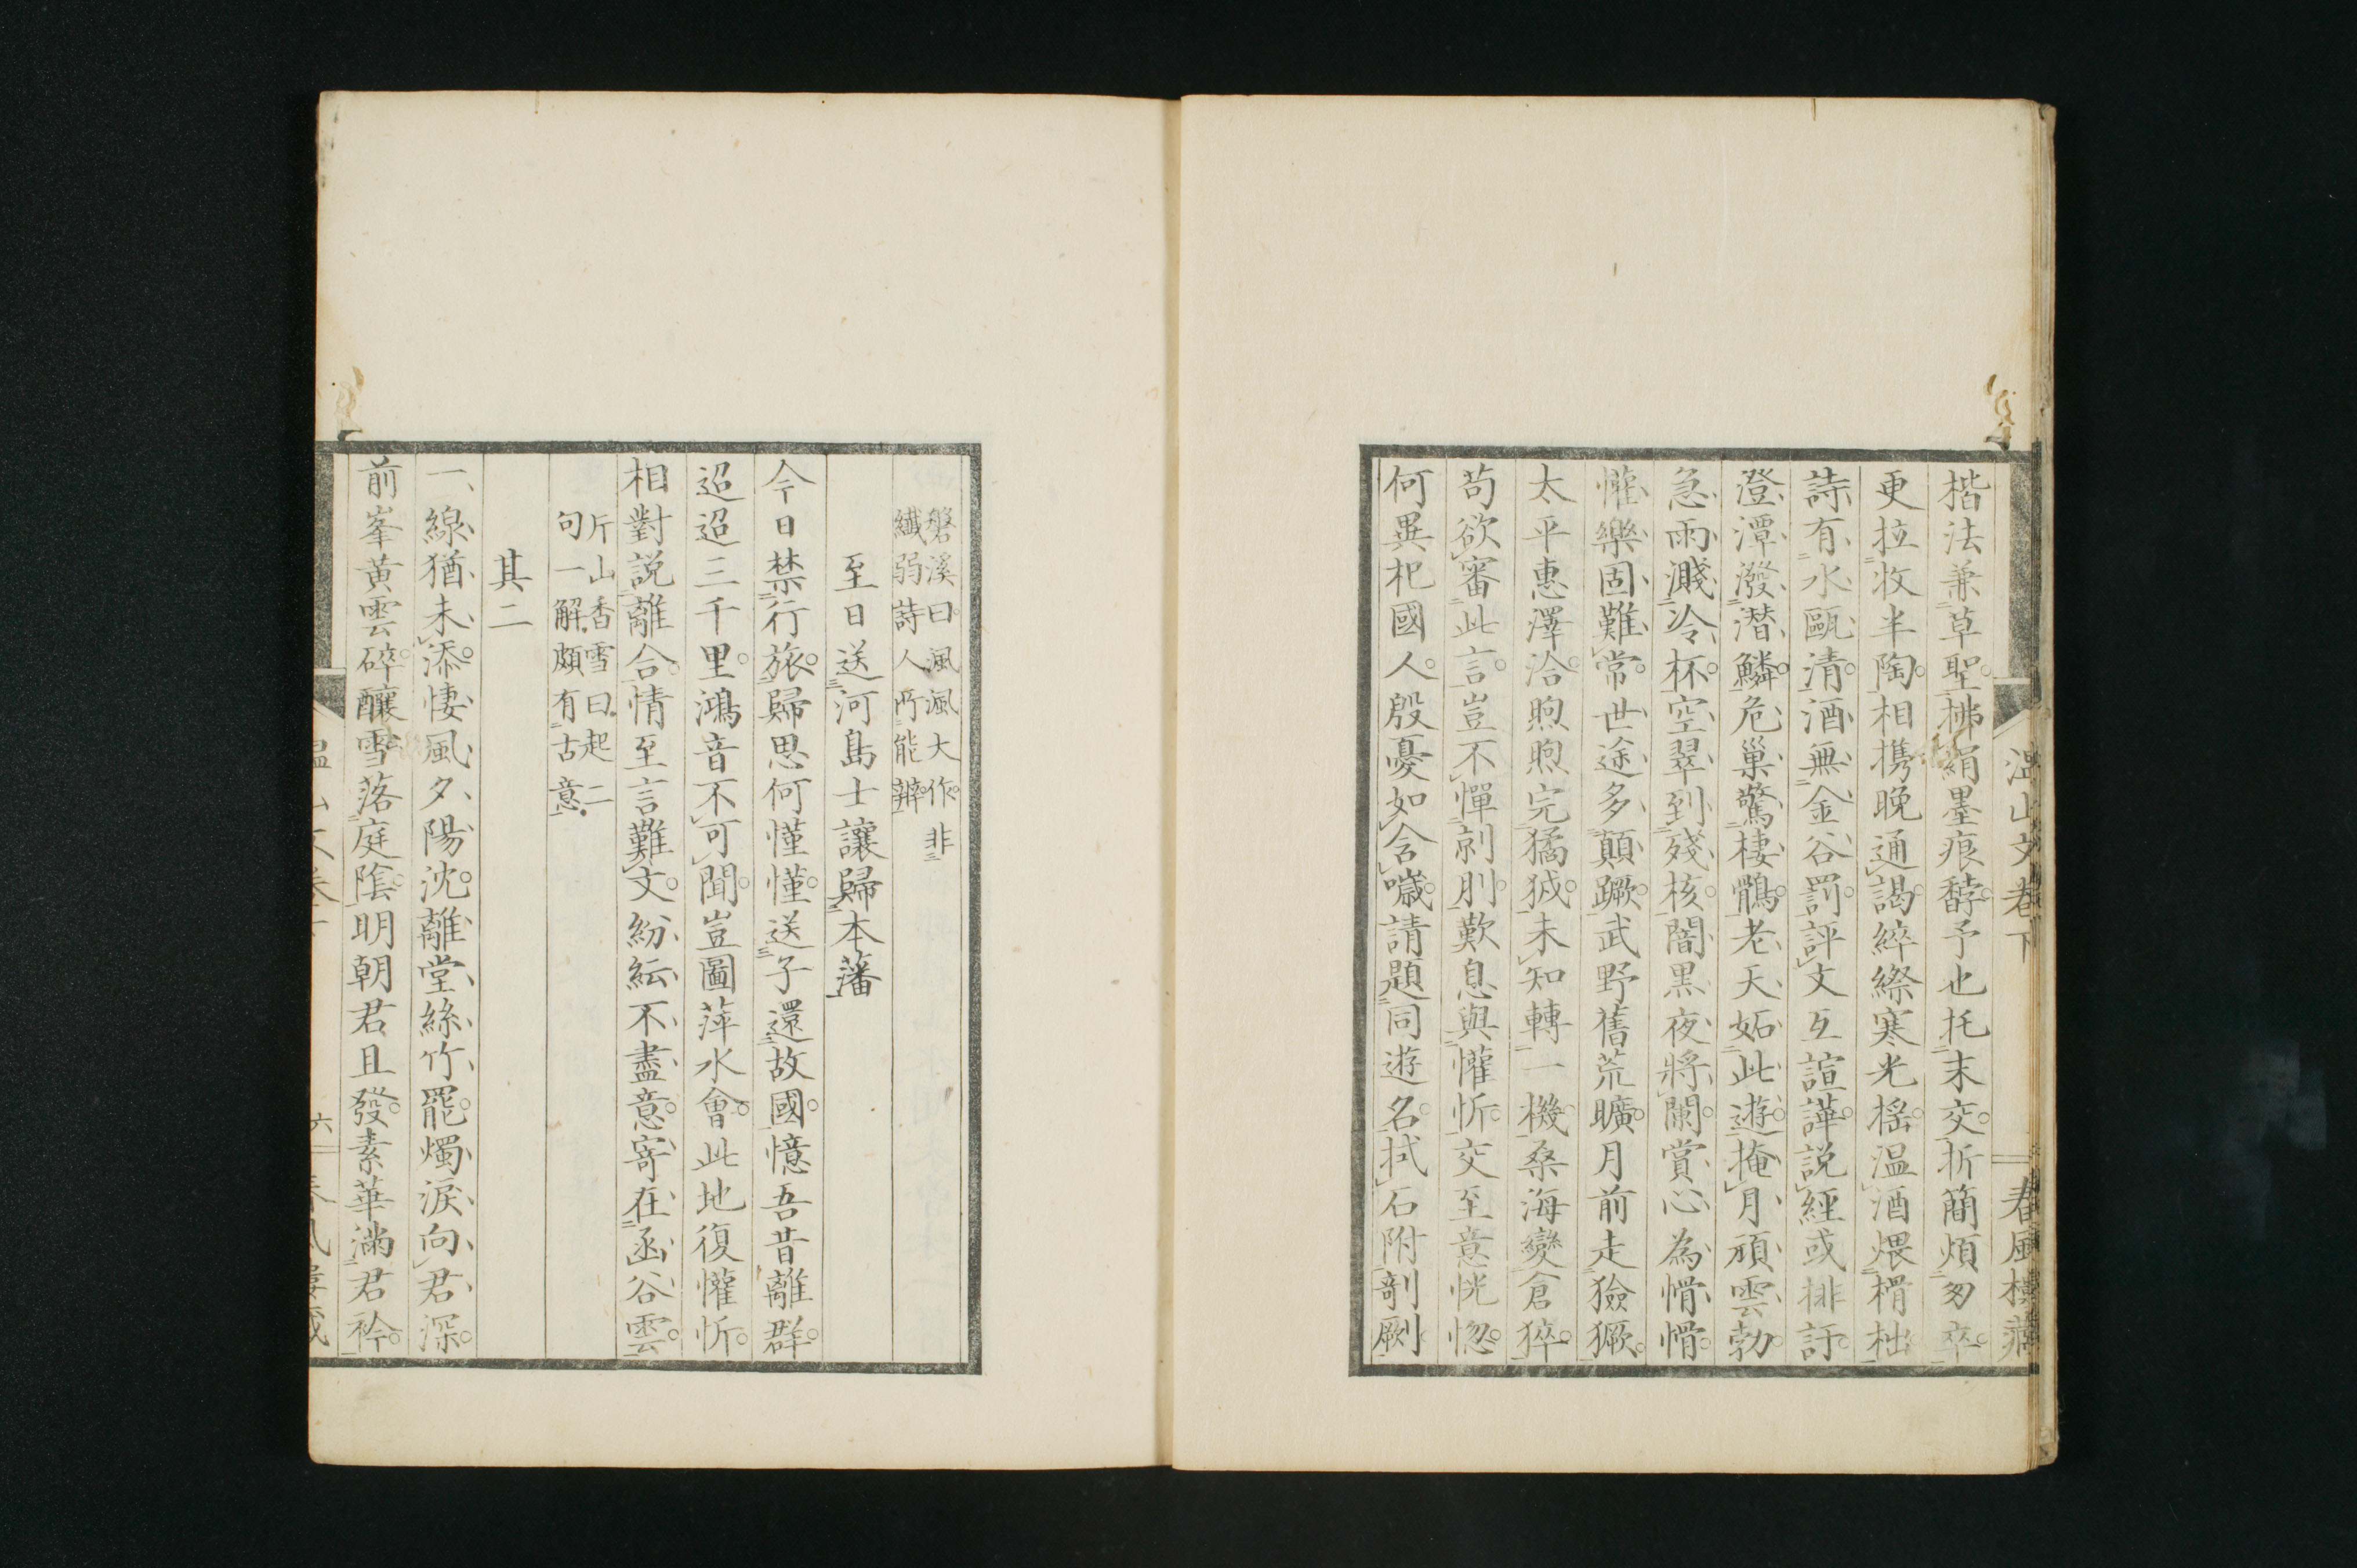 溫山文卷下 春風樓藏
楷法兼草聖拂絹墨痕馞予也托末交折簡煩匆卒
更拉牧半陶相携晚通謁綷縩寒光榣温酒煨榾柮
詩有水甌清酒無金谷罰評文互諠譁説經或排訐
澄潭潑潛鱗危巢驚棲鶻老天妬此遊掩月頑雲勃
急雨濺冷杯空翠到殘核闇黒夜將闌賞心為愲愲
懽樂固難常世途多顛蹶武野舊荒曠月前走獫獗
太平惠澤洽煦煦完猺狘未知轉一機桑海變倉猝
苟欲審此言豈不憚剠刖歎息與懽忻交至意恍惚
何異杞國人殷憂如含噦請題同遊名拭石附剞劂
磐溪曰渢渢大作非
纖弱詩人所能辦
至日送河島士讓歸本藩
今日禁行旅歸思何慬慬送子還故國憶吾昔離群
迢迢三千里鴻音不可聞豈圖萍水會此地復懽忻
相對説離合情至言難文紛紜不盡意寄在函谷雲
片山香雪曰起二
句一解頗有古意
其二
一線猶未添悽風夕陽沈離堂絲竹罷燭淚向君深
前峯黄雲碎釀雪落庭陰明朝君且發素華滿君衿
六